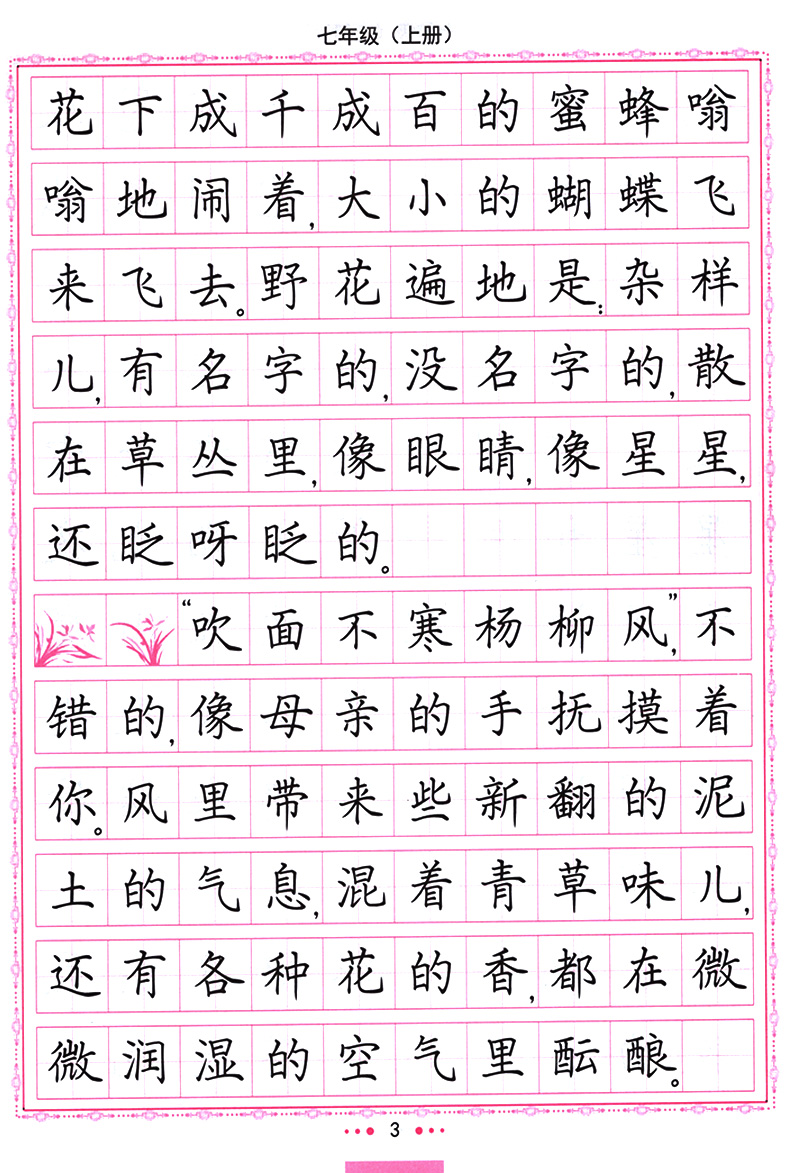 七年级（上册）
花下成千成百的蜜蜂嗡
嗡地闹着,大小的蝴蝶飞
来飞去。野花遍地是:杂样
儿,有名字的,没名字的,散
在草丛里,像眼睛,像星星,
还眨呀眨的。
“吹面不寒杨柳风”,不
错的,像母亲的手抚摸着
你。风里带来些新翻的泥
土的气息,混着青草味儿,
还有各种花的香,都在微
微润湿的空气里酝酿。
3